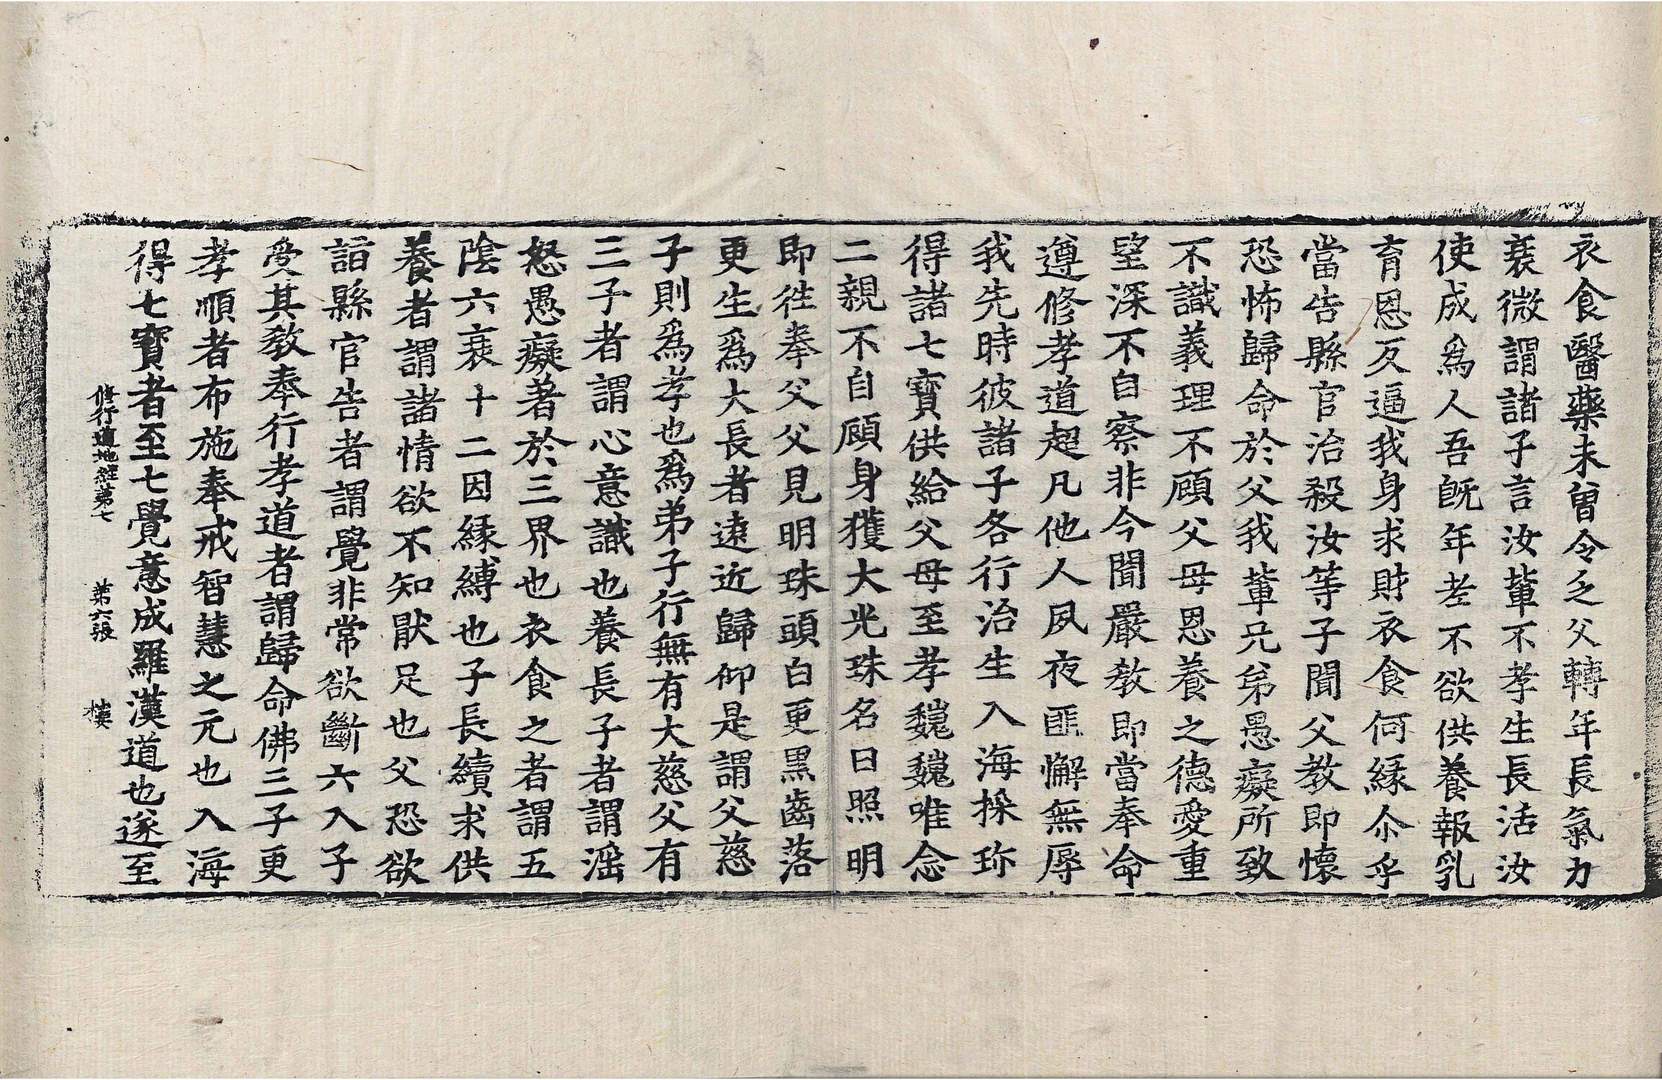 衣食醫藥未曾令乏父轉年長氣力
衰微謂諸子言汝輩不孝生長活汝
使成爲人吾旣年老不欲供養報乳
育恩反逼我身求財衣食何緣尒乎
當告縣官治殺汝等子聞父教即懷
恐怖歸命於父我輩兄弟愚癡所致
不識義理不顧父母恩養之德愛重
望深不自察非今聞嚴敎即當奉命
遵修孝道超凡他人夙夜匪懈無辱
我先時彼諸子各行治生入海採珎
得諸七寶供給父母至孝巍巍唯念
二親不自顧身獲大光珠名曰照明
即徃奉父父見明珠頭白更黒齒落
更生爲大長者遠近歸仰是謂父慈
子則爲孝也爲弟子行無有大慈父有
三子者謂心意識也養長子者謂滛
怒愚癡著於三界也衣食之者謂五
陰六衰十二因緣縛也子長續求供
養者謂諸情欲不知猒足也父恐欲
詣縣官告者謂覺非常欲斷六入子
受其敎奉行孝道者謂歸命佛三子更
孝順者布施奉戒智慧之元也入海
得七寶者至七覺意成羅漢道也遂至
修行道地經第七 第六張 樓